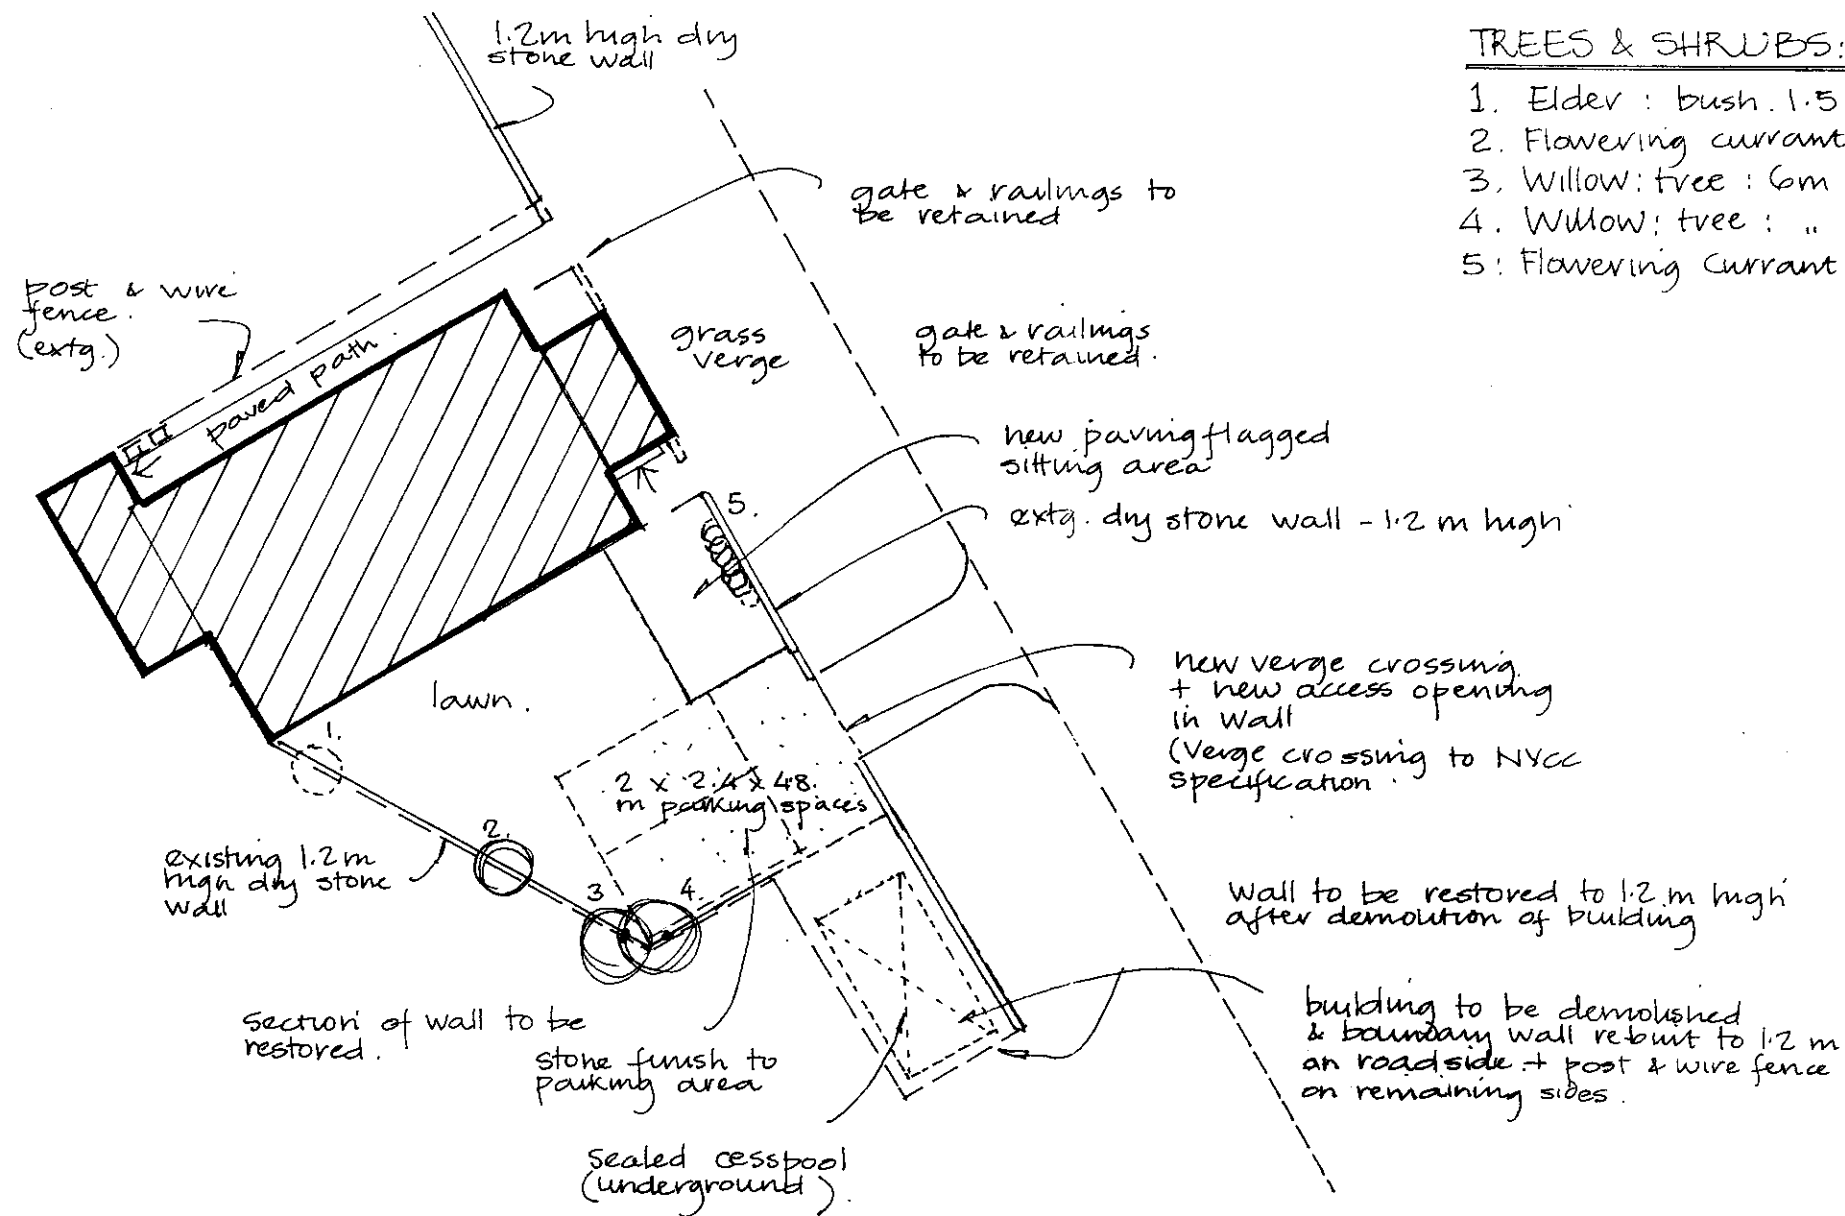 1.2m high dry
stone wall
TREES & SHRUBS:
1. Elder : bush. 1.5
2. Flowering currant
3. Willow: tree : 6m
4. Willow: tree : "
5: Flowering Currant
gate & railings to
be retained
post & wire
fence.
(extg.)
paved path.
grass
verge
gate & railings
to be retained.
new paving flagged
sitting area
5.
extg. dry stone wall - 1.2 m high
new verge crossing
+ new access opening
in wall
(Verge crossing to NYCC
specification.
lawn.
1.
2 x 2.4 x 4.8.
m parking spaces
2.
existing 1.2m
high dry stone
wall
3
4.
wall to be restored to 1.2 m high
after demolition of building
section of wall to be
restored.
stone finish to
parking area
building to be demolished
& boundary wall rebuit to 1.2 m
on roadside + post & wire fence
on remaining sides.
sealed cesspool
(underground).